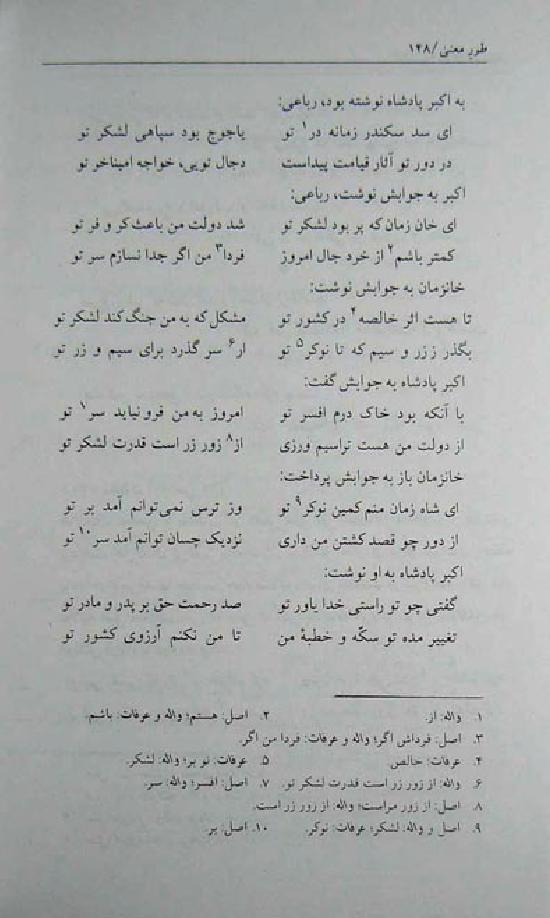 طور معنی/۱۴۸
به اکبر پادشاه نوشته بود، رباعی:
ای سد سکندر زمانه در۱ تو یاجوج بود سپاهی لشکر تو
در دور تو آثار قیامت پیداست دجال تویی، خواجه امیناخر تو
اکبر به جوابش نوشت، رباعی:
ای خان زمان که پر بود لشکر تو شد دولت من باعث کر و فر تو
کمتر باشم۲ از خرد جال امروز فردا۳ من اگر جدا نسازم سر تو
خانزمان به جوابش نوشت:
تا هست اثر خالصه۴ در کشور تو مشکل که به من جنگ کند لشکر تو
بگذر ز زر و سیم که تا نوکر۵ تو از۶ سر گذرد برای سیم و زر تو
اکبر پادشاه به جوابش گفت:
با آنکه بود خاک درم افسر تو امروز به من فرو نیاید سر۷ تو
از دولت من هست تراسیم ورزی از۸ زور زر است قدرت لشکر تو
خانزمان باز به جوابش پرداخت:
ای شاه زمان منم کمین نوکر۹ تو وز ترس نمی‌توانم آمد بر تو
از دور چو قصد کشتن من داری نزدیک چسان توانم آمد سر۱۰ تو
اکبر پادشاه به او نوشت:
گفتی چو تو راستی خدا یاور تو صد رحمت حق بر پدر و مادر تو
تغییر مده تو سکّه و خطبهٔ من تا من نکنم آرزوی کشور تو
۱. واله: از. ۲. اصل: هستم؛ واله و عرفات: باشم.
۳. اصل: فرداش اگر؛ واله و عرفات: فردا من اگر.
۴. عرفات: خالص. ۵. عرفات: تو بر؛ واله: لشکر.
۶. واله: از زور زر است قدرت لشکر تو. ۷. اصل: افسر؛ واله: سر.
۸. اصل: از زور مراست؛ واله: از زور زر است.
۹. اصل و واله: لشکر؛ عرفات: نوکر. ۱۰. اصل: بر.